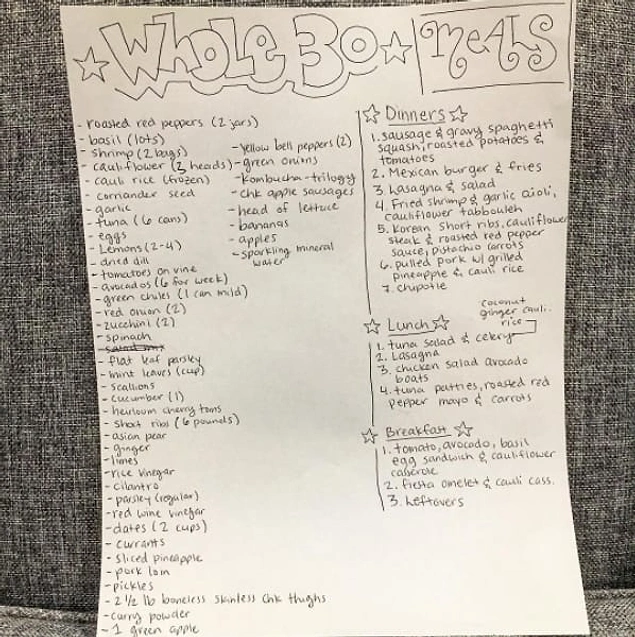 WHOLE 30
MEALS
- roasted red peppers (2 jars)
- basil (lots)
- shrimp (2 bags)
- cauliflower (3 heads)
- cauli rice (frozen)
- corriander seed
- garlic
- tuna (6 cans)
- eggs
- Lemons (2-4)
- dried dill
- tomatoes on vine
- avocados (6 for week)
- green chiles (1 can mild)
- red onion (2)
- zucchini (2)
- spinach
- flat leaf parsley
- mint leaves (cup)
- scallions
- cucumber (1)
- heirloom cherry toms
- short ribs (6 pounds)
- asian pear
- ginger
- limes
- rice vinegar
- cilantro
- parsley (regular)
- red wine vinegar
- dates (2 cups)
- currants
- sliced pineapple
- pork loin
- pickles
- 2 1/2 lb boneless skinless chk thighs
- curry powder
- 1 green apple
- yellow bell peppers (2)
- green onions
- kombucha-trilogy
- chk apple sausages
- head of lettuce
- bananas
- apples
- sparkling mineral
water
Dinners
1. sausage & gravy spaghetti
squash, roasted potatoes &
tomatoes
2. Mexican burger & fries
3. Lasagna & salad
4. Fried shrimp & garlic aioli,
cauliflower tabbouleh
5. Korean short ribs, cauliflower
steak & roasted red pepper
sauce, pistachio carrots
6. pulled pork w/ grilled
pineapple & cauli rice
7. chipotle
coconut
ginger cauli.
rice
Lunch
1. tuna salad & celery
2. Lasagna
3. chicken salad avocado
boats
4. tuna patties, roasted red
pepper mayo & carrots
Breakfast
1. tomato, avocado, basil
egg sandwich & cauliflower
casserole
2. fiesta omelet & cauli cass.
3. leftovers